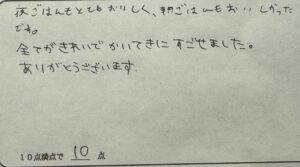 夜ごはんもとてもおいしく、朝ごはんもおいしかった
です。
全てがきれいでかいてきにすごせました。
ありがとうございます
10点満点で 10 点